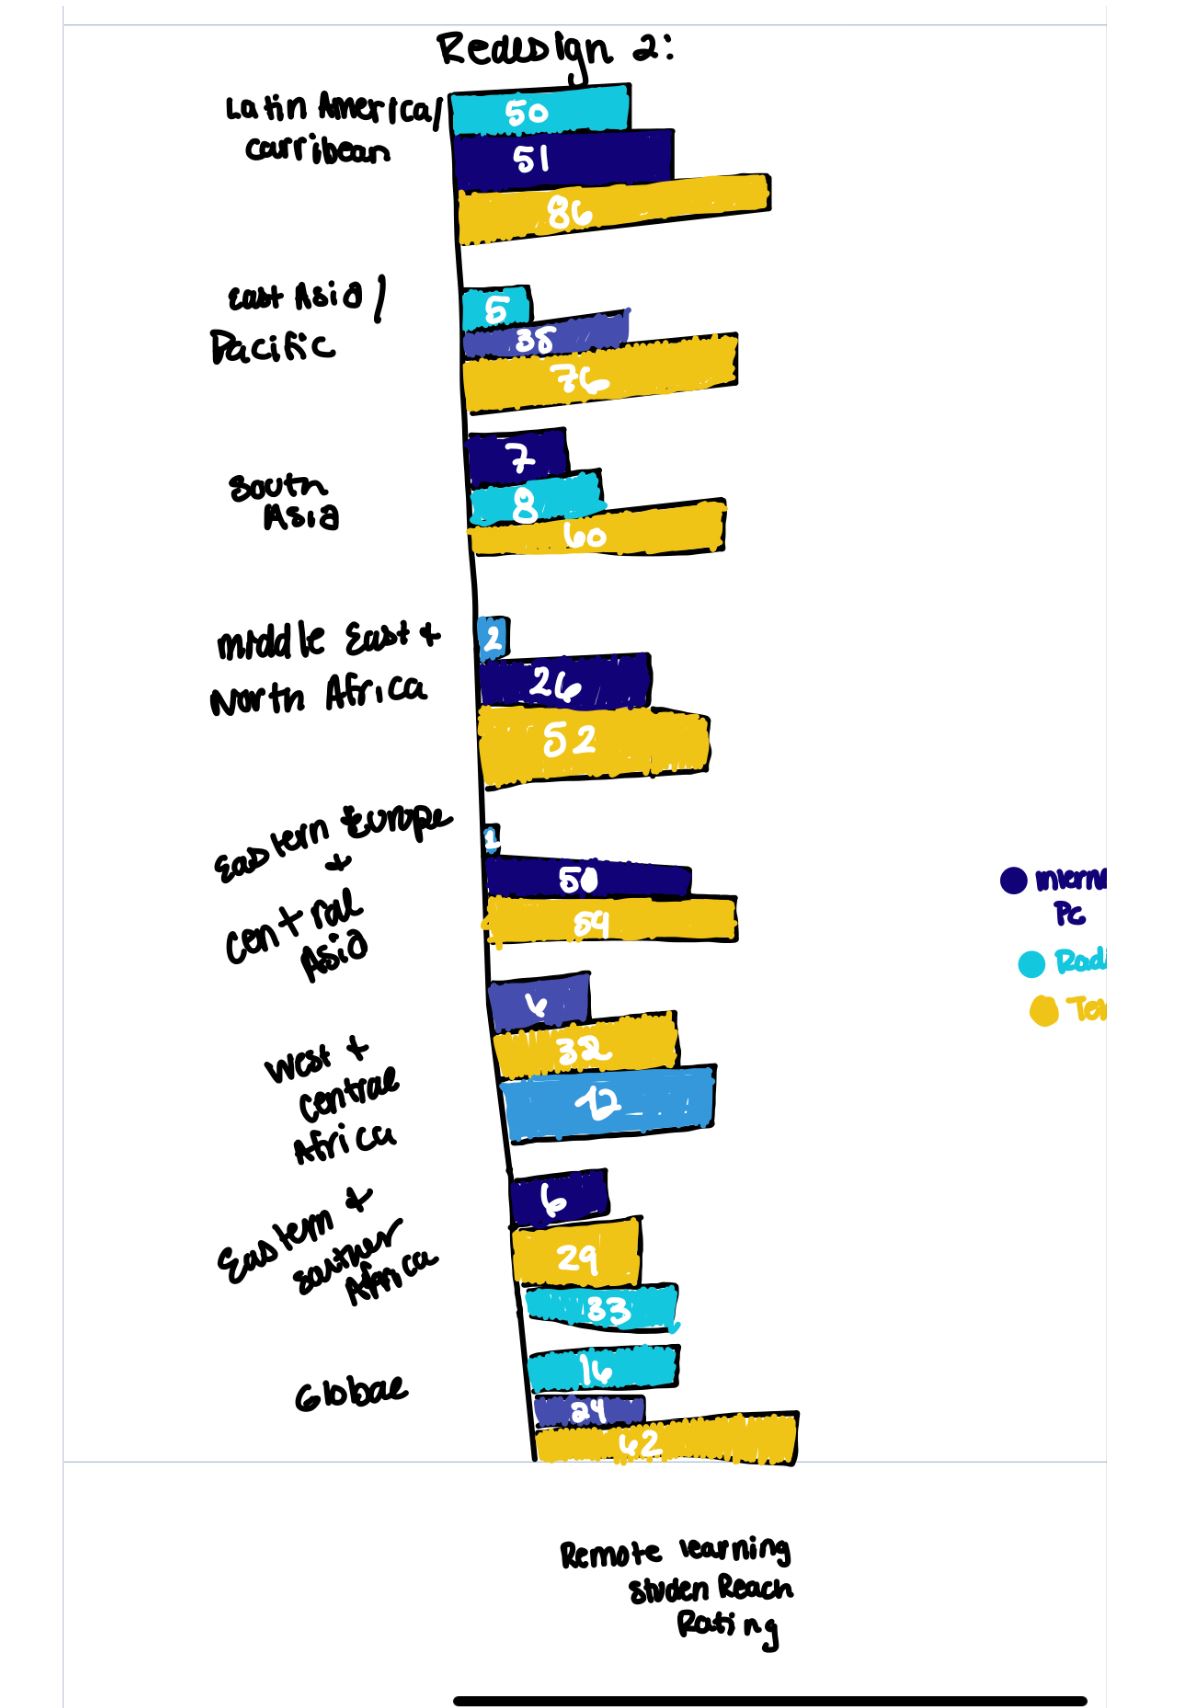 Redesign 2:
Latin America/
carribean
50
51
86
East Asia/
Pacific
5
38
76
South
Asia
7
8
60
Middle East +
North Africa
2
26
52
Eastern Europe
+
Central
Asia
1
50
59
West +
central
Africa
6
32
12
Eastern +
souther
Africa
6
29
33
Global
16
24
62
Interne
Pc
Radi
Tele
Remote learning
studen Reach
Rating